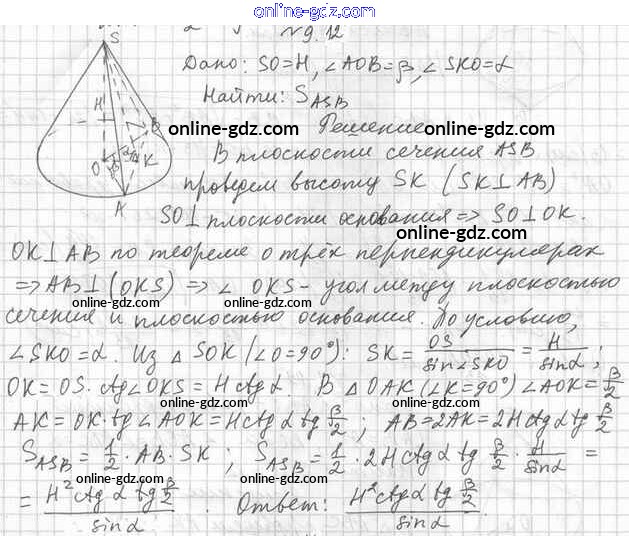 online-gdz.com
№ 9.12
Дано: SO=H, ∠AOB=β, ∠SKO=α
Найти: S_ASB
online-gdz.com Решение online-gdz.com
В плоскости сечения ASB
проведем высоту SK (SK⊥AB)
SO⊥плоскости основания => SO⊥OK.
online-gdz.com
OK⊥AB по теореме о трёх перпендикулярах
=> AB⊥(OKS) => ∠OKS - угол между плоскостью
online-gdz.com online-gdz.com
сечения и плоскостью основания. По условию,
∠SKO=α. Из △SOK (∠O=90°): SK = OS/sin∠SKO = H/sinα;
online-gdz.com
OK=OS·ctg∠OKS=Hctgα. В △OAK (∠K=90°) ∠AOK=β/2
AK=OK·tg∠AOK=Hctgα tg β/2; AB=2AK=2Hctgα tg β/2
online-gdz.com online-gdz.com
S_ASB=1/2·AB·SK; S_ASB=1/2·2Hctgα tg β/2·H/sinα =
online-gdz.com online-gdz.com
= H²ctgα tg β/2 / sinα. Ответ: H²ctgα tg β/2 / sinα.
S
H
O
β
α
K
B
A